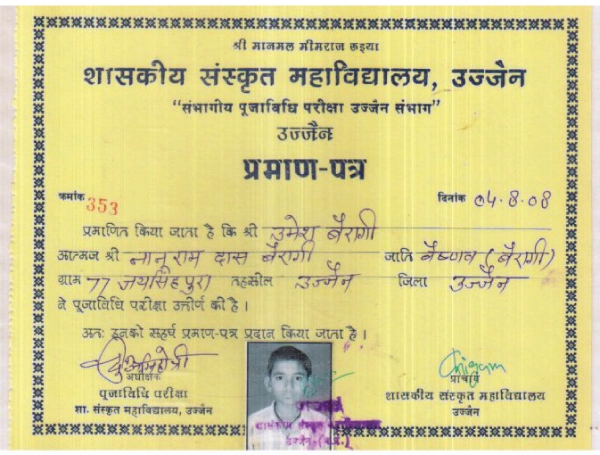 श्री मानमल मीमराज रुइया
शासकीय संस्कृत महाविद्यालय, उज्जैन
“संभागीय पूजाविधि परीक्षा उज्जैन संभाग”
उज्जैन
प्रमाण-पत्र
क्रमांक 353 दिनांक 04.8.08
प्रमाणित किया जाता है कि श्री उमेश बैरागी
आत्मज श्री नानुराम दास बैरागी जाति वैष्णव (बैरागी)
ग्राम 77 जयसिंहपुरा तहसील उज्जैन जिला उज्जैन
ने पूजाविधि परीक्षा उत्तीर्ण की है।
अतः इनको सहर्ष प्रमाण-पत्र प्रदान किया जाता है।
अधीक्षक
पूजाविधि परीक्षा
शा. संस्कृत महाविद्यालय, उज्जैन
प्राचार्य
शासकीय संस्कृत महाविद्यालय
उज्जैन
प्राचार्य
शासकीय संस्कृत महाविद्यालय
उज्जैन (म.प्र.)